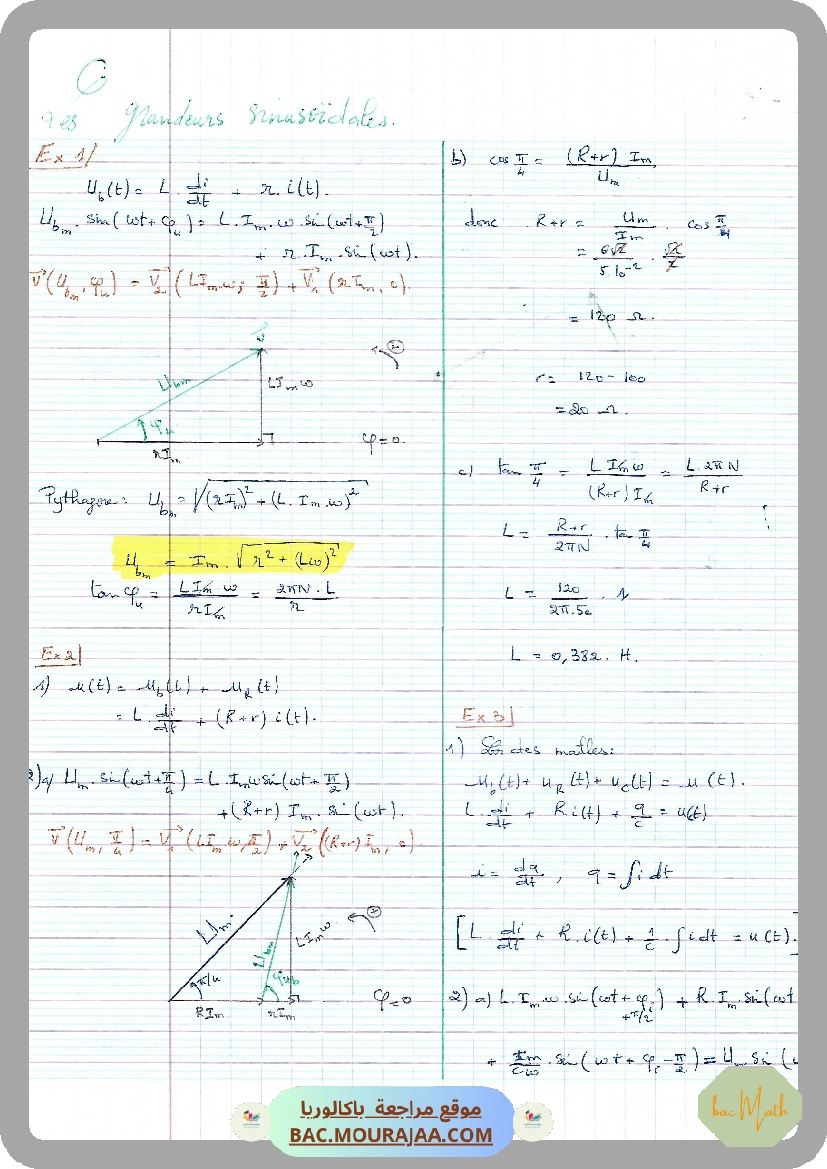 Les grandeurs sinusoïdales.
Ex 1/
U_b(t) = L . di/dt + r . i(t).
U_bm . sin(ωt + φ_u) = L . I_m . ω . sin(ωt + π/2)
+ r . I_m . sin(ωt).
V⃗(U_bm, φ_u) = V⃗_2(L I_m . ω ; π/2) + V⃗_1(r I_m, 0).
U_bm
L I_m ω
φ_u
φ = 0.
r I_m
+
Pythagore : U_bm = √((r I_m)² + (L . I_m . ω)²)
U_bm = I_m . √(r² + (Lω)²)
tan φ_u = L I_m ω / r I_m = 2πN . L / r
Ex 2/
1) u(t) = u_b(t) + u_R(t)
= L . di/dt + (R+r) i(t).
2) a/ U_m . sin(ωt + π/4) = L . I_m ω sin(ωt + π/2)
+ (R+r) I_m . sin(ωt).
V⃗(U_m, π/4) = V⃗_1(L I_m . ω, π/2) + V⃗_2((R+r) I_m, 0)
U_m
U_bm
L I_m ω
+
π/4
φ_ub
φ = 0
R I_m
r I_m
b) cos π/4 = (R+r) I_m / U_m
donc R+r = U_m / I_m . cos π/4
= 6√2 / 5 10⁻² . √2 / 2
= 120 Ω.
r = 120 - 100
= 20 Ω.
c) tan π/4 = L I_m ω / (R+r) I_m = L . 2πN / R+r
L = R+r / 2πN . tan π/4
L = 120 / 2π.50 . 1
L = 0,382 . H.
Ex 3/
1) Loi des mailles :
u_b(t) + u_R(t) + u_c(t) = u(t).
L . di/dt + R . i(t) + q/c = u(t)
i = dq/dt , q = ∫ i dt
[L . di/dt + R . i(t) + 1/c . ∫ i dt = u(t).]
2) a) L . I_m . ω . sin(ωt + φ_i + π/2) + R . I_m . sin(ωt
+ I_m / cω . sin(ωt + φ_i - π/2) = U_m sin(
bac Math
موقع مراجعة باكالوريا
BAC.MOURAJAA.COM